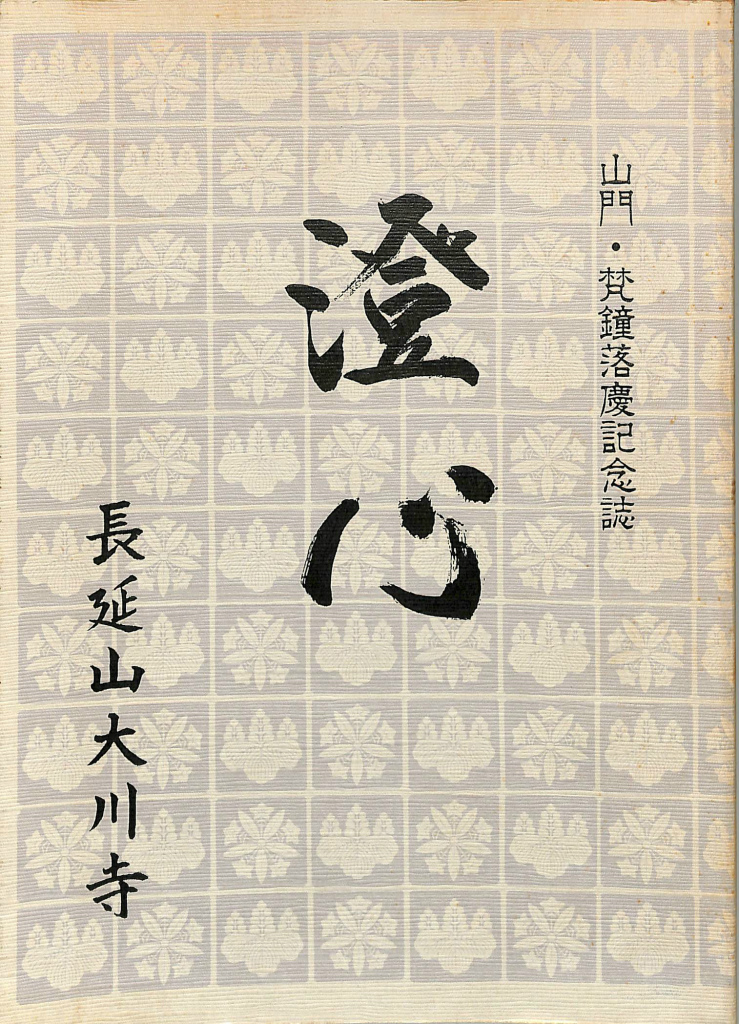 山門・梵鐘落慶記念誌
澄心
長延山大川寺